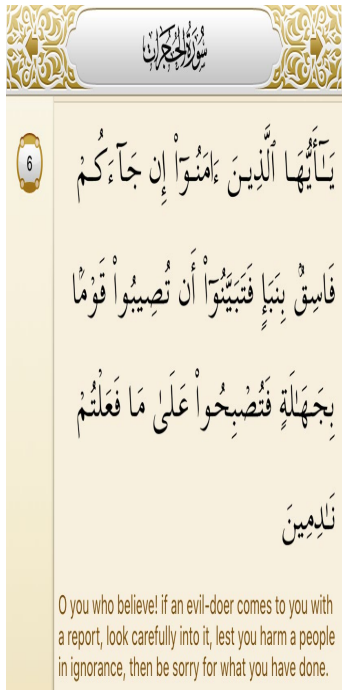 سُورَةُ الحُجُرَاتِ
6
يَـٰٓأَيُّهَا ٱلَّذِينَ ءَامَنُوٓا۟ إِن جَآءَكُمْ
فَاسِقٌۢ بِنَبَإٍ فَتَبَيَّنُوٓا۟ أَن تُصِيبُوا۟ قَوْمًۢا
بِجَهَـٰلَةٍ فَتُصْبِحُوا۟ عَلَىٰ مَا فَعَلْتُمْ
نَـٰدِمِينَ
O you who believe! if an evil-doer comes to you with
a report, look carefully into it, lest you harm a people
in ignorance, then be sorry for what you have done.